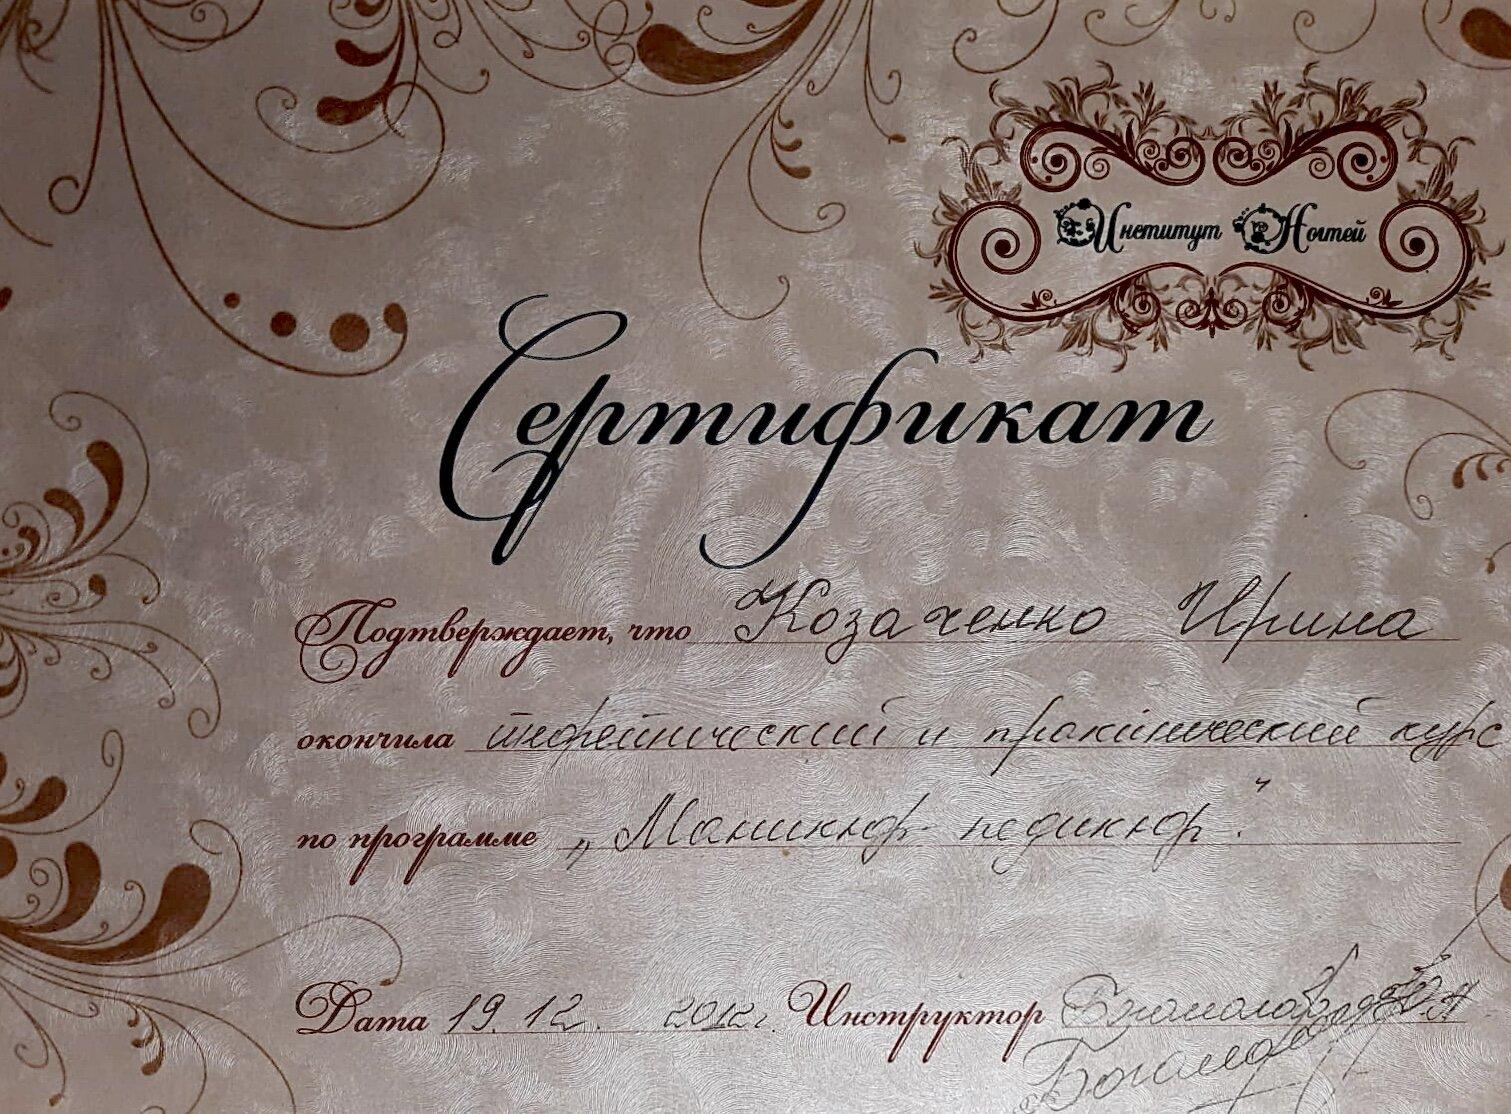 Институт Ногтей
Сертификат
Подтверждает, что Козаченко Ирина
окончила теоретический и практический курс
по программе „Маникюр педикюр."
Дата 19. 12. 2012г. Инструктор